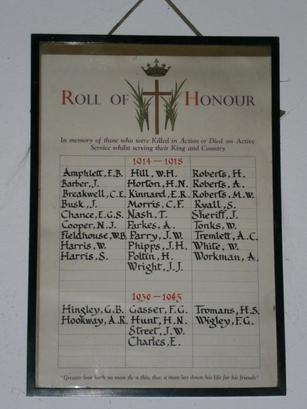 ROLL OF HONOUR
In memory of those who were Killed in Action or Died on Active
Service whilst serving their King and Country
1914 - 1918
Amphlett, E.B. Hill, W.H. Roberts, H.
Barber, J. Horton, H.N. Roberts, A.
Breakwell, C.E. Kinnard, E.R. Roberts, M.W.
Busk, J. Morris, C.F. Ryall, S.
Chance, E.G.S. Nash, T. Sheriff, J.
Cooper, N.J. Parkes, A. Tonks, W.
Fieldhouse, W.B. Parry, J.W. Tremlett, A.C.
Harris, W. Phipps, J.H. White, W.
Harris, S. Poltin, H. Workman, A.
Wright, J.J.
1939 - 1945
Hingley, G.B. Gasser, F.G. Tromans, H.S.
Hookway, A.K. Hunt, H.N. Wigley, F.G.
Street, J.W.
Charles, E.
"Greater love hath no man than this, that a man lays down his life for his friends"